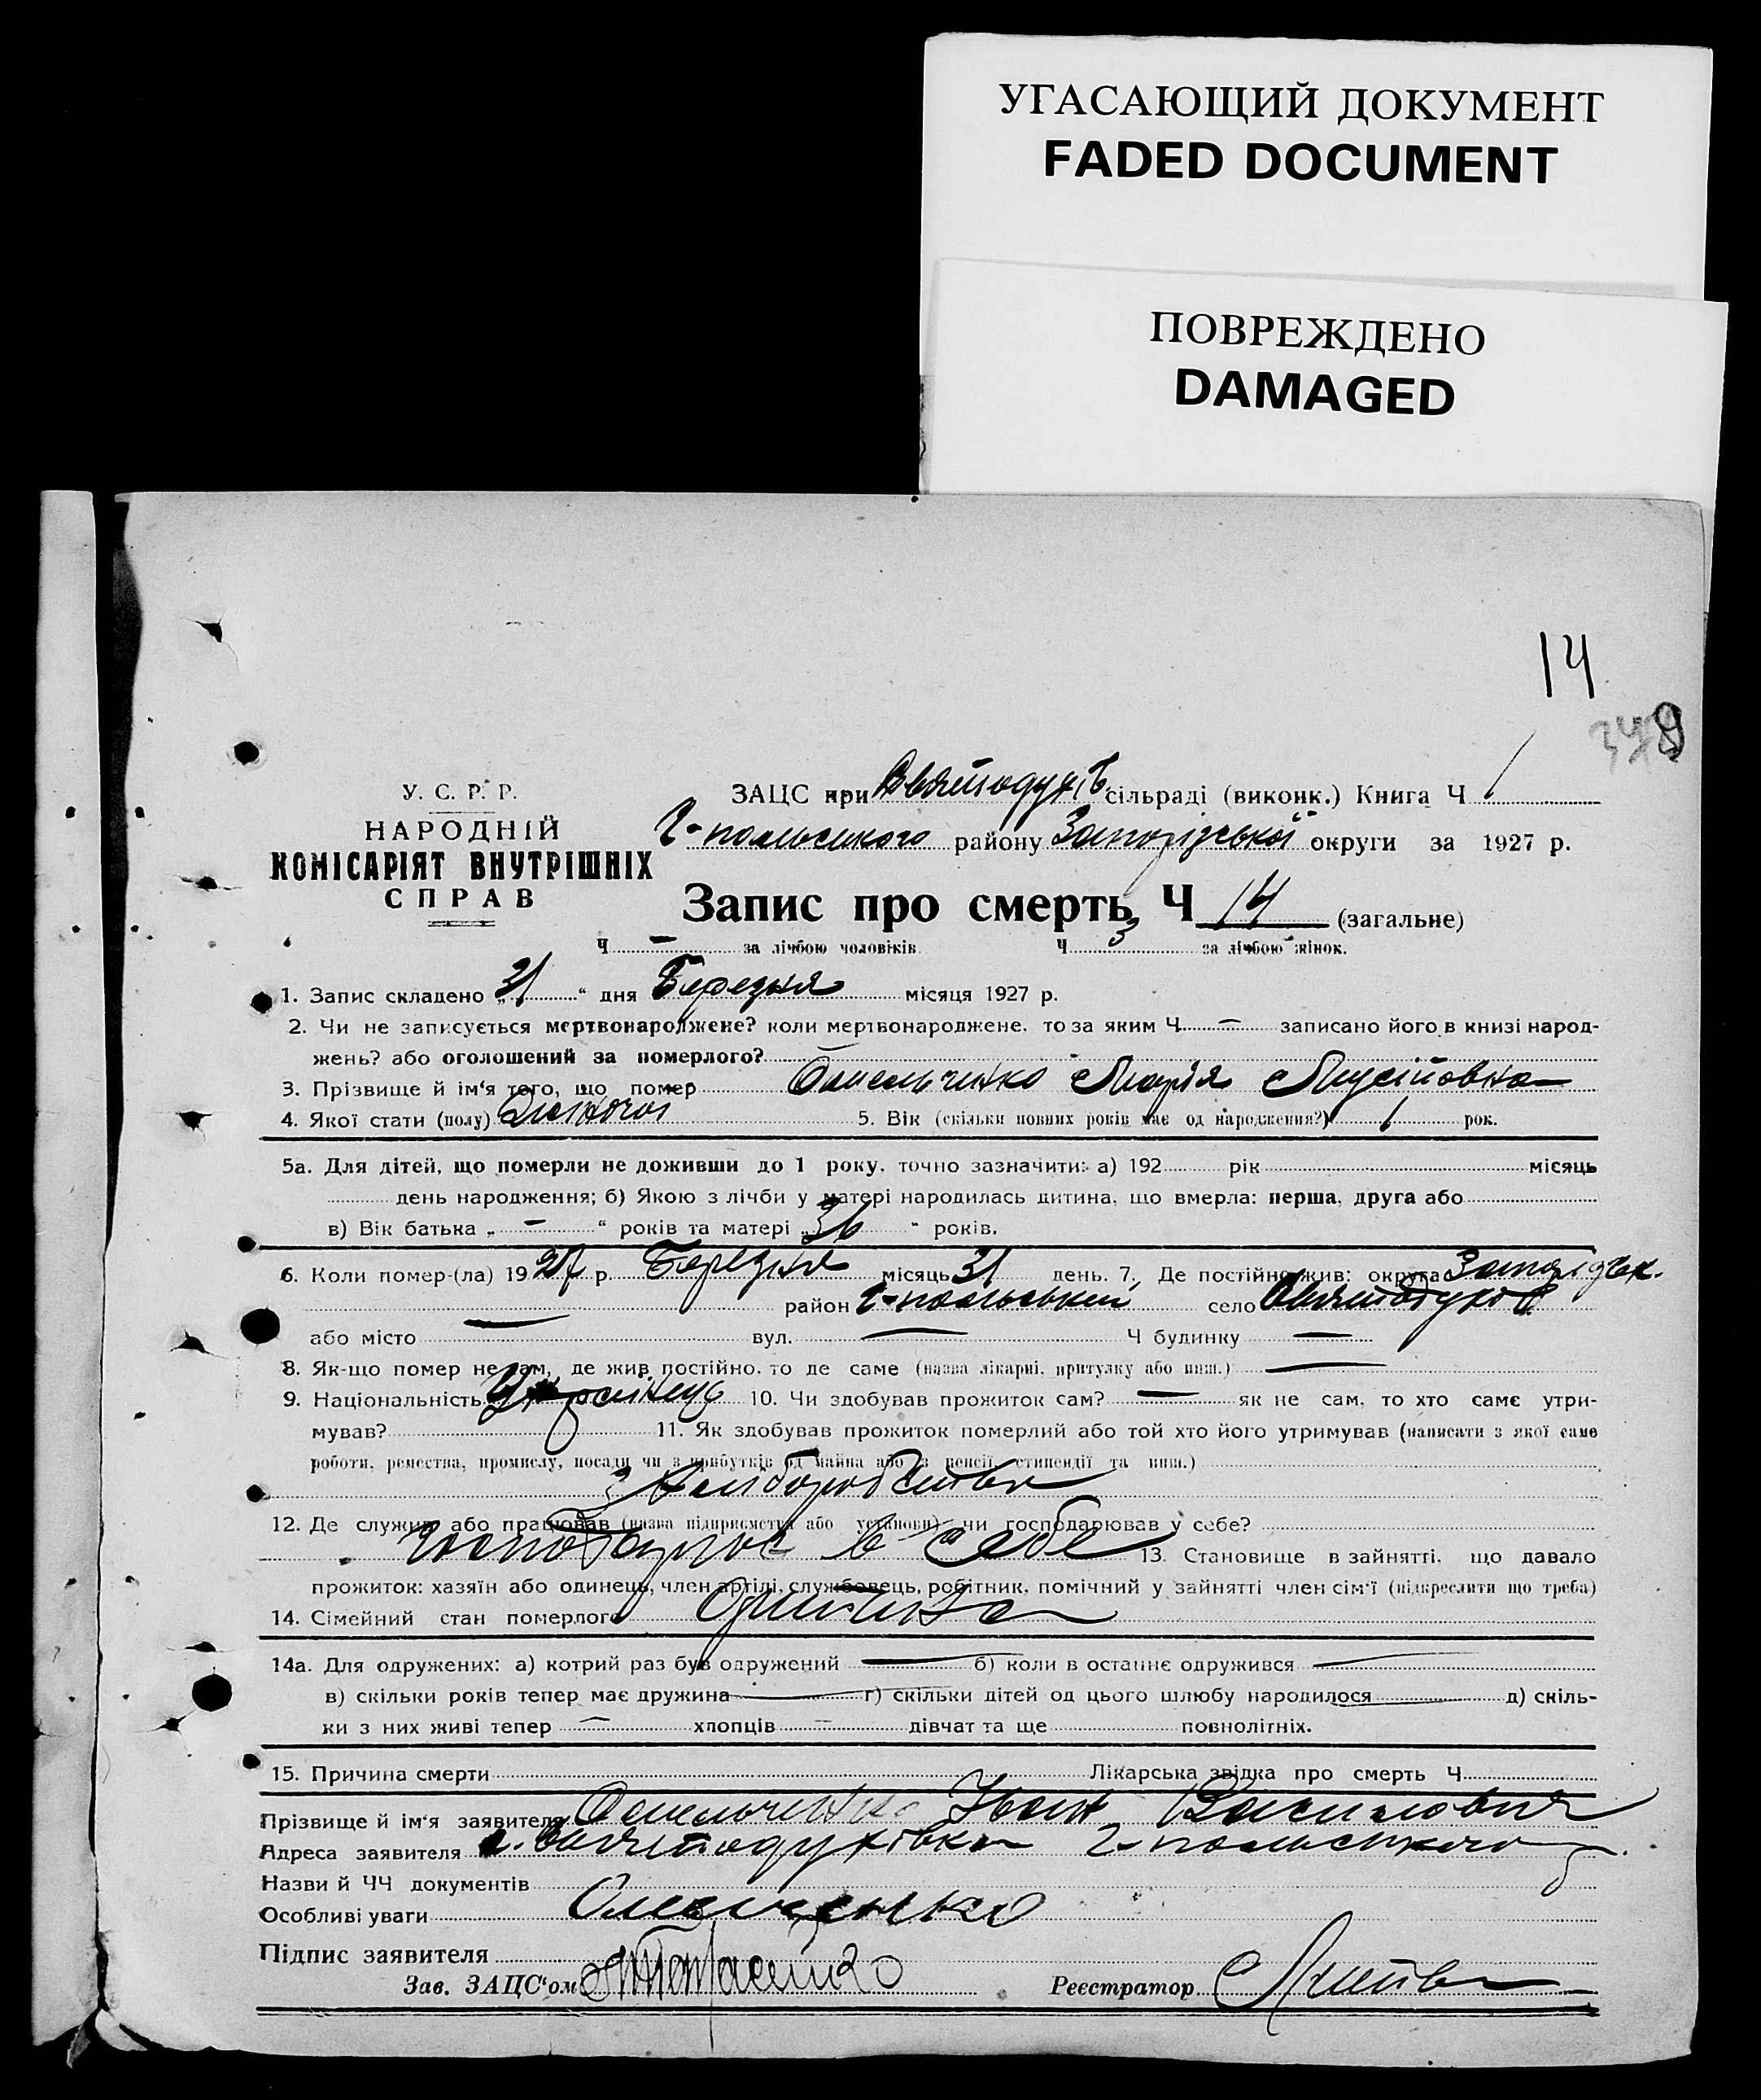 УГАСАЮЩИЙ ДОКУМЕНТ
FADED DOCUMENT
ПОВРЕЖДЕНО
DAMAGED
14
У. С. Р. Р.
НАРОДНІЙ
КОМІСАРІЯТ ВНУТРІШНІХ
СПРАВ
ЗАЦС при Святодухів сільраді (виконк.) Книга Ч 1
Г-польського району Запорізської округи за 1927 р.
Запис про смерть Ч 14 (загальне)
Ч — за лічбою чоловіків Ч 3 за лічбою жінок.
1. Запис складено „31“ дня Березня місяця 1927 р.
2. Чи не записується мертвонароджене? коли мертвонароджене, то за яким Ч — записано його в книзі народ-
жень? або оголошений за померлого?
3. Прізвище й ім'я того, що помер Омельченко Марія
4. Якої стати (полу) Жіночої 5. Вік (скільки повних років має од народження?) 1 рок.
5а. Для дітей, що померли не доживши до 1 року, точно зазначити: а) 192 рік місяць
день народження; б) Якою з лічби у матері народилась дитина, що вмерла: перша, друга або
в) Вік батька „ — “ років та матері „36“ років.
6. Коли помер-(ла) 1927 р. Березня місяць 31 день. 7. Де постійно жив: округа Запорізьк.
район Г-польський село Святодухів
або місто — вул. — Ч будинку —
8. Як-що помер не там, де жив постійно, то де саме (назва лікарні, притулку або инш.) —
9. Національність Українець 10. Чи здобував прожиток сам? — як не сам, то хто саме утри-
мував? 11. Як здобував прожиток померлий або той хто його утримував (написати з якої саме
роботи, ремества, промислу, посади чи з прибутків од майна або з пенсії, стипендії та инш.)
з хліборобства
12. Де служив або працював (назва підприємства або установи) чи господарював у себе?
господарює в себе 13. Становище в зайнятті, що давало
прожиток: хазяїн або одинець, член артілі, службовець, робітник, помічний у зайнятті член сім'ї (підкреслити що треба)
14. Сімейний стан померлого
14а. Для одружених: а) котрий раз був одружений — б) коли в останнє одружився —
в) скільки років тепер має дружина — г) скільки дітей од цього шлюбу народилося — д) скіль-
ки з них живі тепер — хлопців — дівчат та ще повнолітніх.
15. Причина смерти Лікарська звідка про смерть Ч
Прізвище й ім'я заявителя Омельченко Іван Василович
Адреса заявителя с. Святодухівка Г-польського
Назви й ЧЧ документів
Особливі уваги
Підпис заявителя
Зав. ЗАЦС'ом
Реєстратор